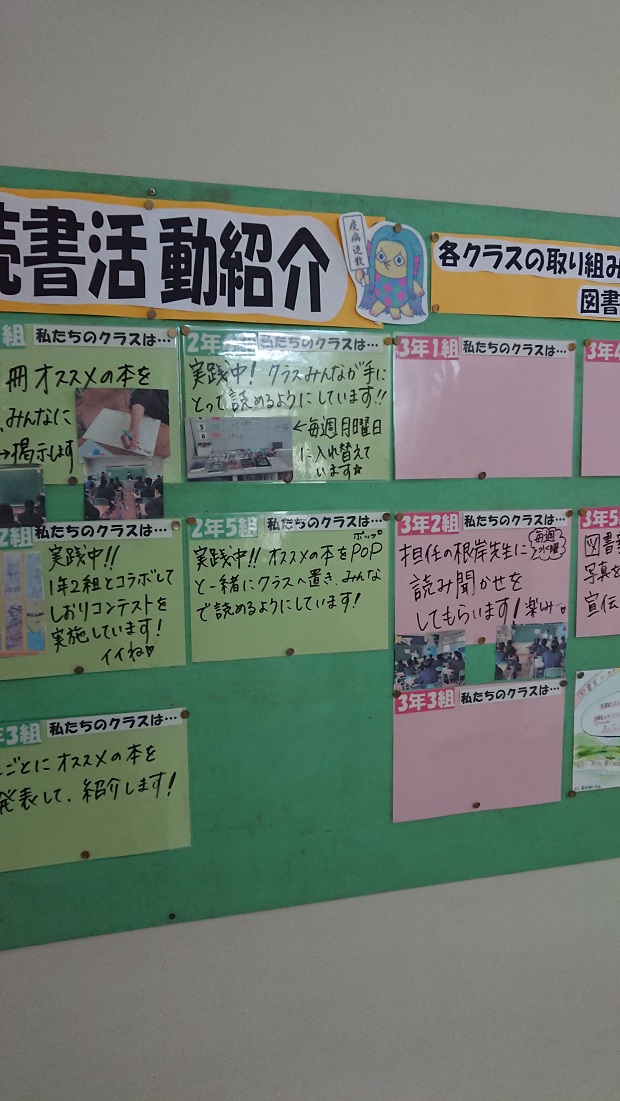 読書活動紹介
疫病退散
各クラスの取り組み
図書
組 私たちのクラスは…
冊オススメの本を
みんなに
→掲示します
2年4組 私たちのクラスは…
実践中! クラスみんなが手に
とって読めるようにしています!!
←毎週月曜日
に入れ替えて
います☆
3年1組 私たちのクラスは…
3年4
2組 私たちのクラスは…
実践中!!
1年2組とコラボして
しおりコンテストを
実施しています!
イイね♡
2年5組 私たちのクラスは…
ポップ
実践中!! オススメの本をPOP
と一緒にクラスへ置き、みんな
で読めるようにしています!
3年2組 私たちのクラスは…
担任の根岸先生に
毎週水曜
読み聞かせを
してもらいます!楽しみ…♡
3年5
図書
写真を
宣伝
3年3組 私たちのクラスは…
年3組 私たちのクラスは…
ごとにオススメの本を
発表して、紹介します!